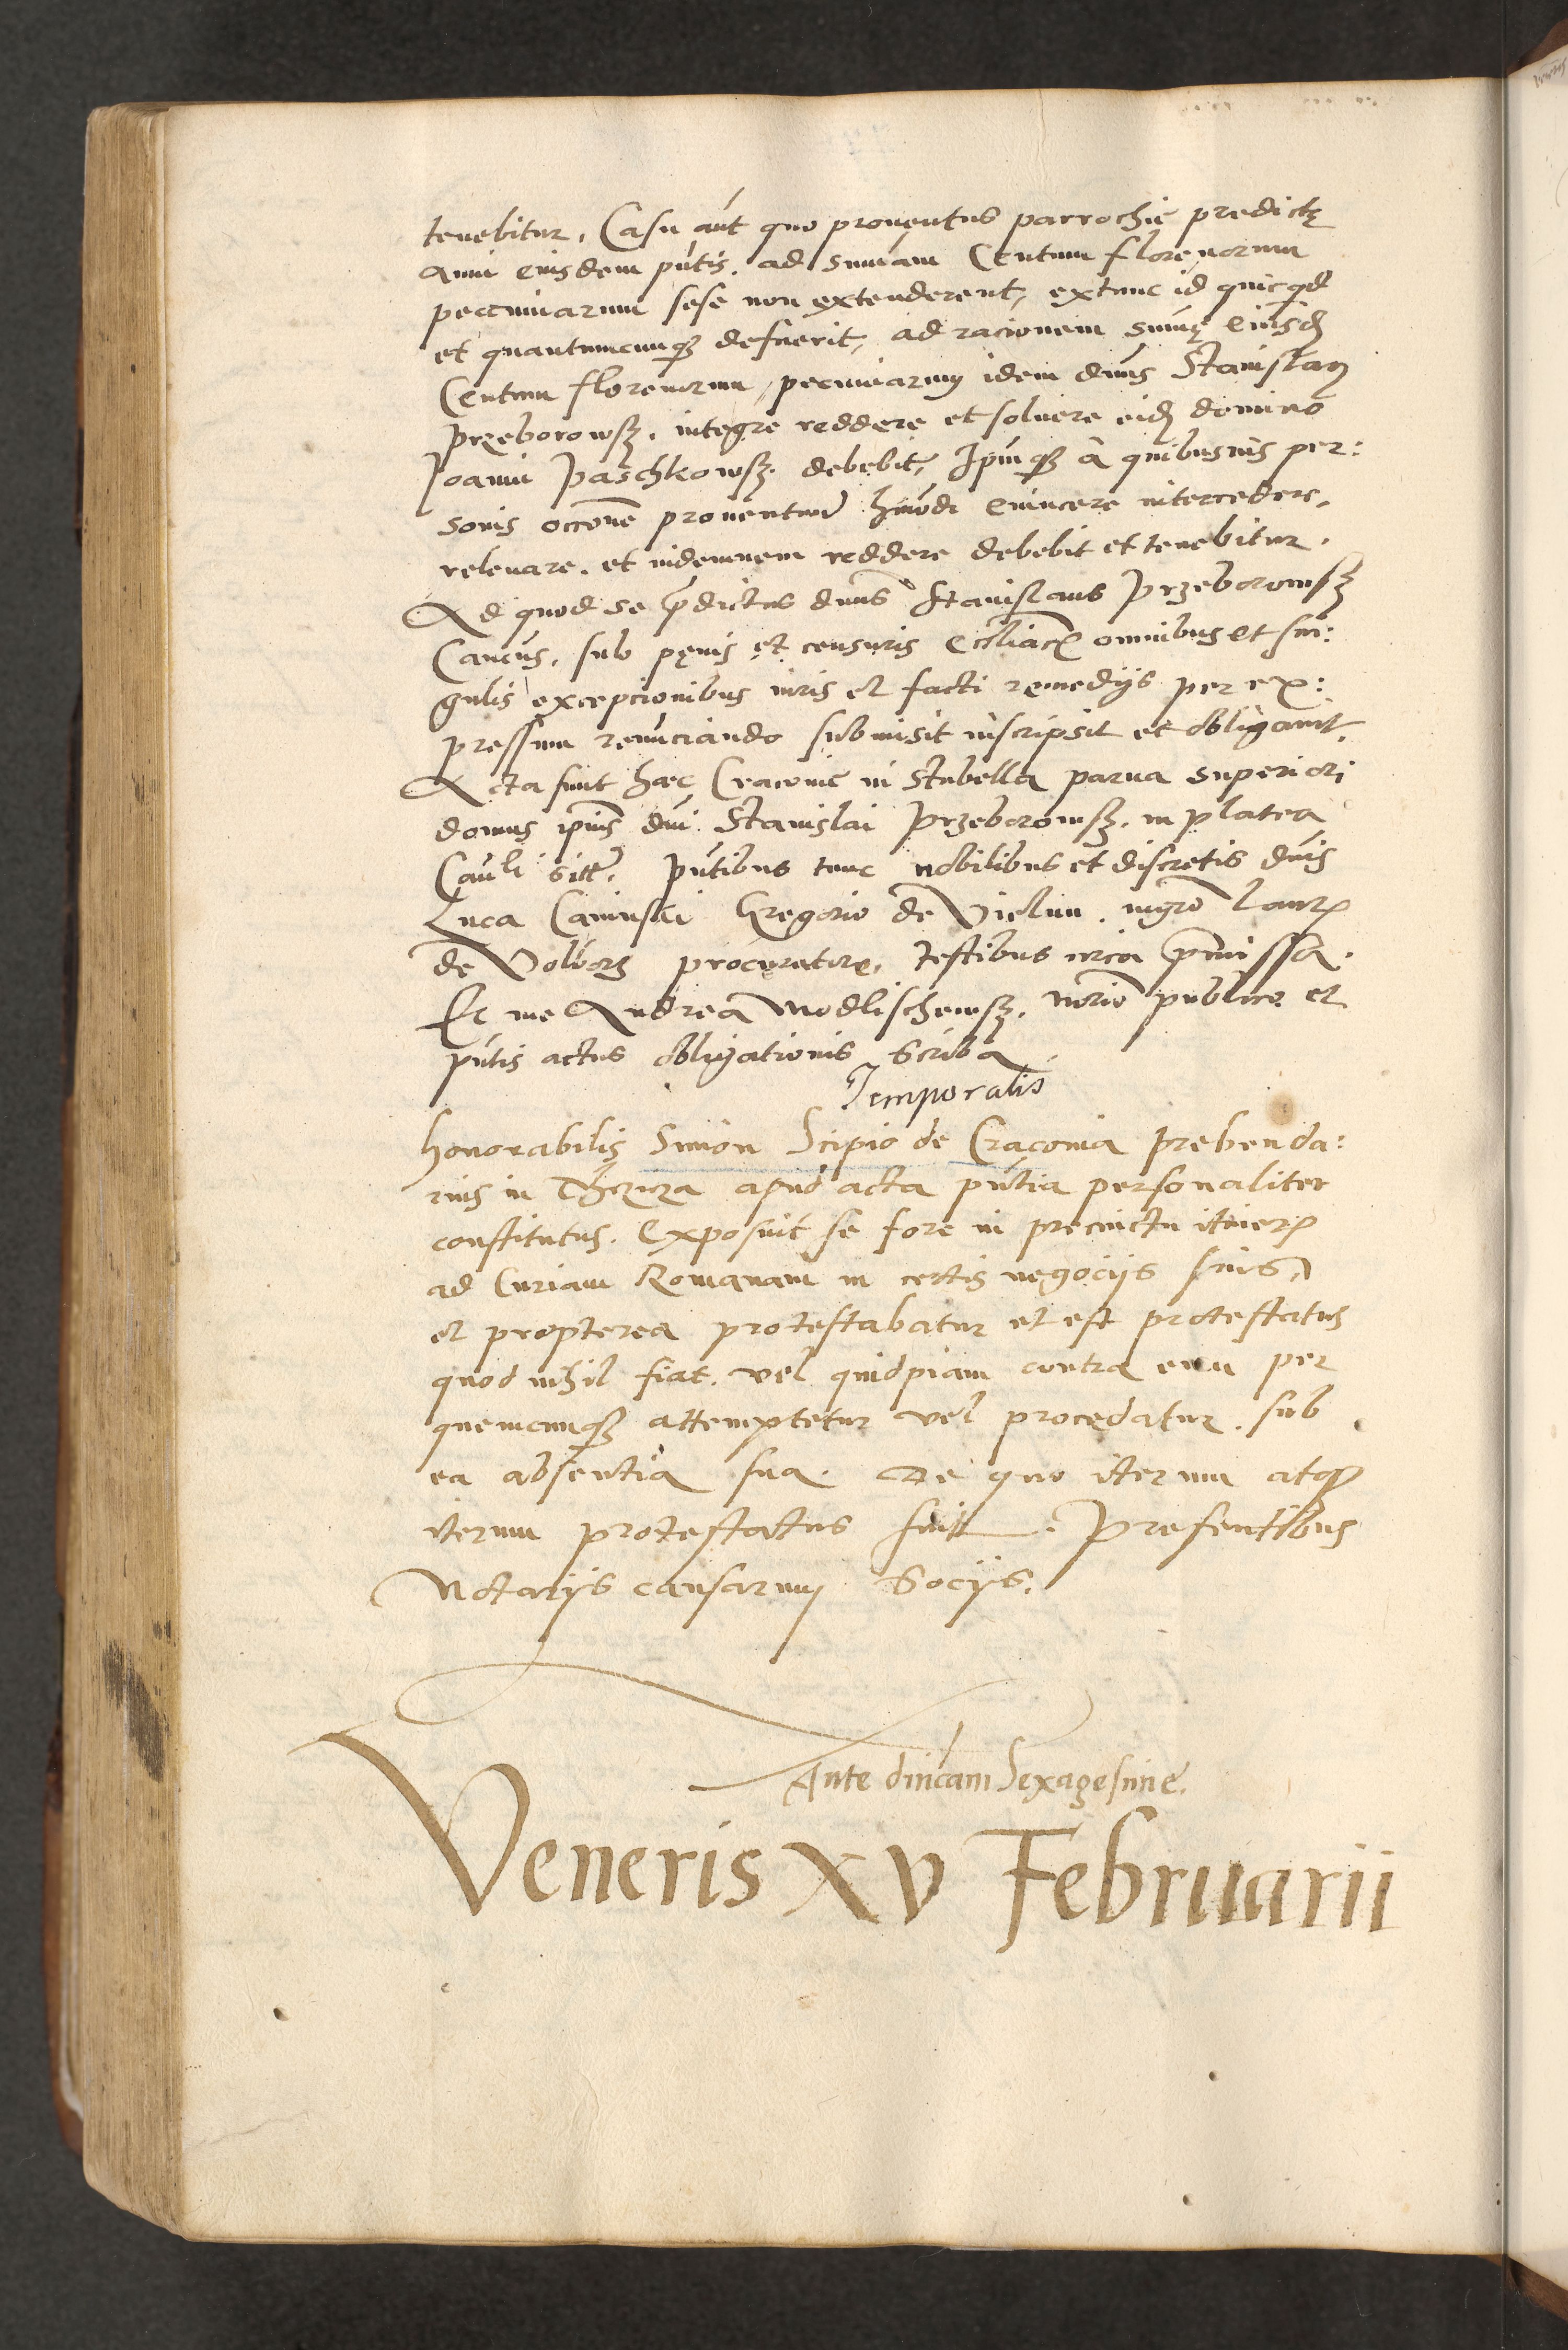 tenebitur. Casu aut quo proventus parrochie predictę
anni eiusdem pntis. ad summam Centum florenorum
pecuniarum sese non extenderent, extunc id quicqd
et quantumcunq defuerit, ad racionem summę eiusd
Centum florenorum pecuniarum idem dnus Stanislaus
Przeborowsky. integre reddere et solvere eid domino
Joanni Paschkowsky. debebit, Ipmq a quibusvis per:
sonis occone proventuum hmodi evincere intercedere,
relevare. et indemnem reddere debebit et tenebitur.
Ad quod se pdictus dnus Stanislaus Przeborowsky
Cancus, sub pęnis et censuris eccliacis omnibus et sin:
gulis excepcionibus iuris et facti remedijs per ex:
pressum renunciando submisit inscripsit et obligavit.
Acta sunt hæc Cracovie in Stubella parva superiori
domus ipius dni Stanislai Przeborowsky. in platea
Canli sitt. Pntibus tunc nobilibus et discretis dnis
Luca Gregorio de Vielun. mgro Laur
de Volborz procuratore. testibus circa pmissa.
Et me Andrea Modlischewsky. notrio publico et
pntis actus obligationis scriba
Temporalis
Honorabilis Simon Scipio de Cracovia prebenda:
rius in apud acta pntia personaliter
constitutus. Exposuit se fore in precinctu itiner
ad Curiam Romanam in certis negocijs suis,
et propterea protestabatur et est protestatus
quod nihil fiat. vel quidpiam contra eum per
quemcunq attemptetur vel procedatur. sub
ea absentia sua. De quo iterum atq
iterum protestatus fuit. Presentibus
Notarijs causarum Socijs.
Ante dnicam Sexagesime.
Veneris XV Februarii